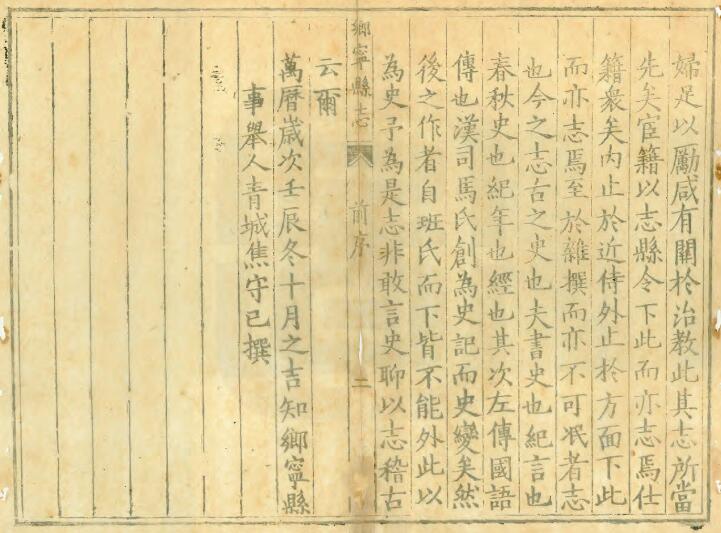 婦足以勵咸有關於治教此其志所當
先矣宦籍以志縣令下此而亦志焉仕
籍衆矣內止於近侍外止於方面下此
而亦志焉至於雜撰而亦不可泯者志
也今之志古之史也夫書史也紀言也
春秋史也紀年也經也其次左傳國語
傳也漢司馬氏創為史記而史變矣然
後之作者自班氏而下皆不能外此以
為史予為是志非敢言史聊以志稽古
鄉寧縣志 前序 二
云爾
萬曆歲次壬辰冬十月之吉知鄉寧縣
事舉人青城焦守已撰